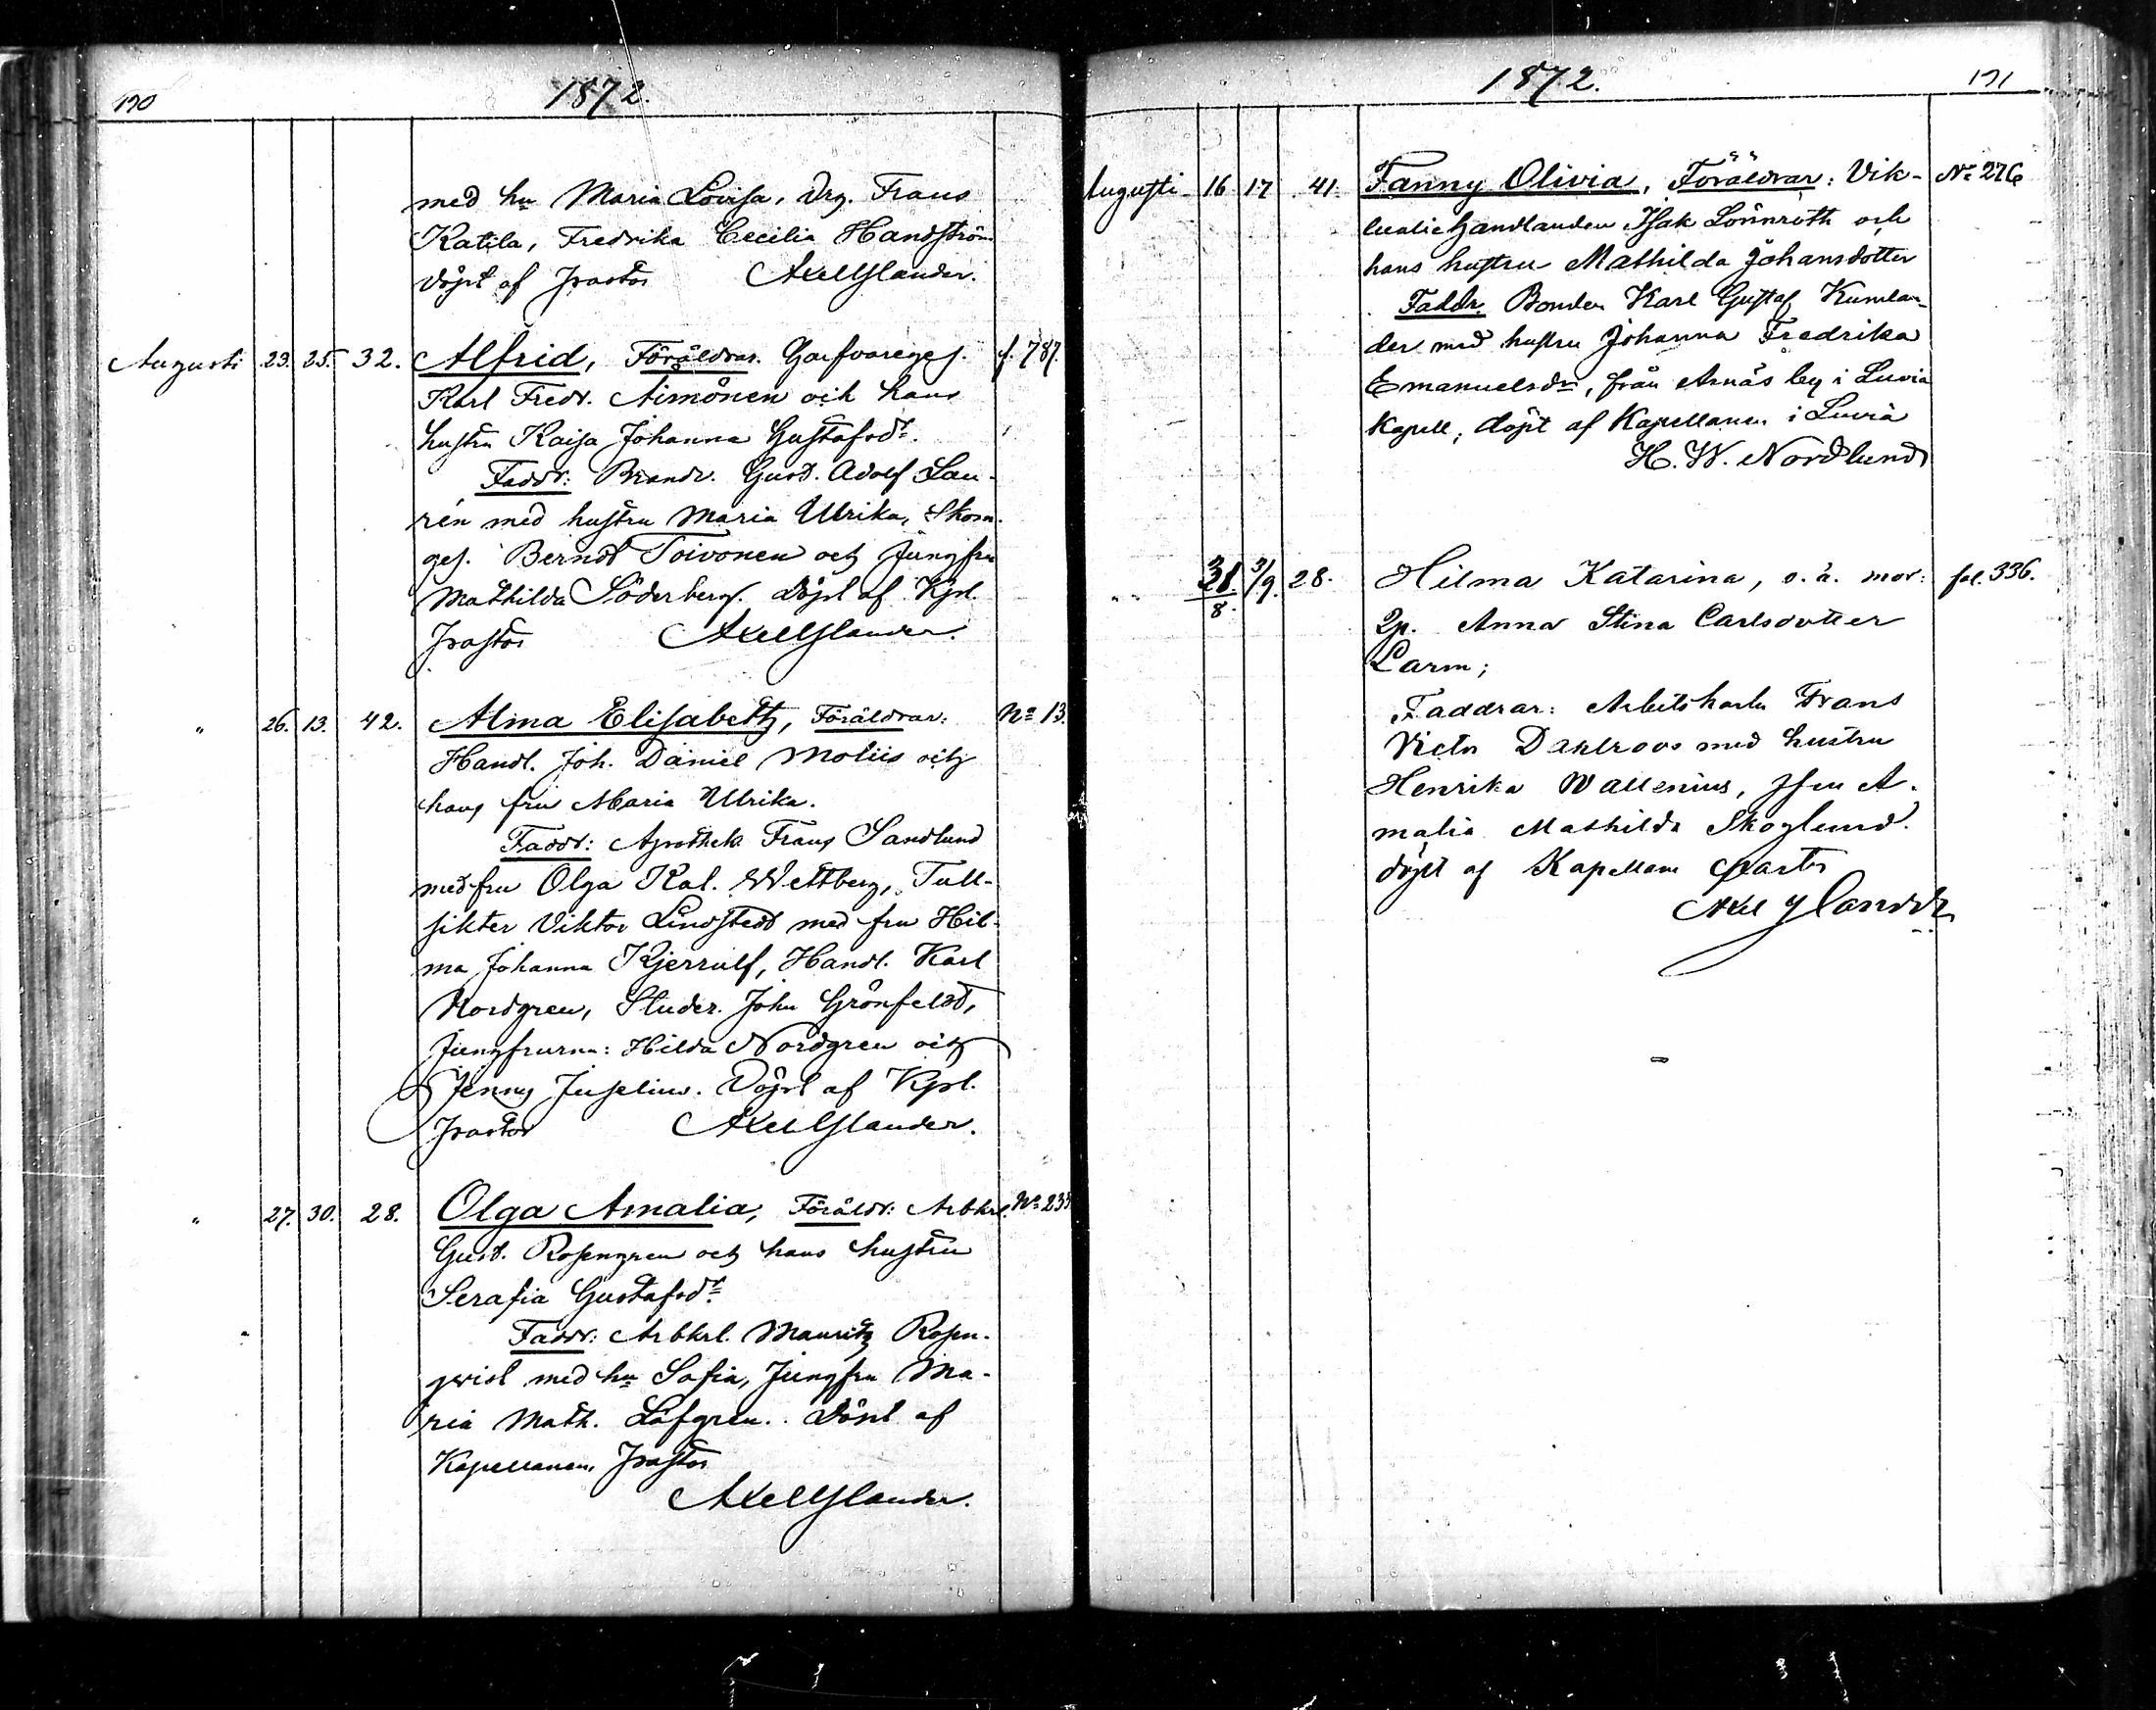 190
1872.
med hu Maria Lovisa, Drg. Frans
Katila, Fredrika Cecilia Handström
döpt af Pastor Axel Ylander.
Augusti 23. 25. 32. Alfrid, Föräldrar. Garfvareges. f. 787.
Karl Fredr. Aimonen och hans
hustru Kaisa Johanna Gustafsdr.
Faddr: Brandv. Gust. Adolf Lau-
rén med hustru Maria Ulrika, Skom.
ges. Berndt Toivonen och Jungfru
Mathilda Söderberg. Döpt af Kpl.
Pastor Axel Ylander.
" 26. 13. 42. Alma Elisabeth, Föräldrar: No 13.
Handl. Joh. Daniel Moliis och
hans fru Maria Ulrika.
Faddr: Apothek. Frans Sandlund
med fru Olga Kat. Wettberg, Tull-
sikter Viktor Lindstedt med fru Hil-
ma Johanna Kjerrulf, Handl. Karl
Nordgren, Studer. John Grönfeldt,
Jungfrurna: Hilda Nordgren och
Jenny Juselius. Döpt af Kpl.
Pastor Axel Ylander.
" 27. 30. 28. Olga Amalia, Föräldr: Arbkrl. No 233
Gust. Rosengren och hans hustru
Serafia Gustafsdr.
Faddr: Arbkrl. Mauritz Rosen-
qvist med hu Sofia, Jungfru Ma-
ria Math. Löfgren. Döpt af
Kapellanen, Pastor
Axel Ylander.
1872.
191
Augusti 16 17 41. Fanny Olivia, Föräldrar: Vik- No 276
tualiehandlanden Isak Lönnroth och
hans hustru Mathilda Johansdotter
Faddr. Bonden Karl Gustaf Kumlan-
der med hustru Johanna Fredrika
Emanuelsdr, från Arnäs by i Luvia
Kapell; döpt af Kapellanen i Luvia
H. W. Nordlund
" 31/8. 3/9. 28. Hilma Katarina, o. ä. mor: fol. 336.
Qp. Anna Stina Carlsdotter
Larm;
Faddrar: Arbetskarlen Frans
Victor Dahlroos med hustru
Henrika Wallenius, Jfru A-
malia Mathilda Skoglund.
döpt af Kapellanen Pastor
Axel Ylander